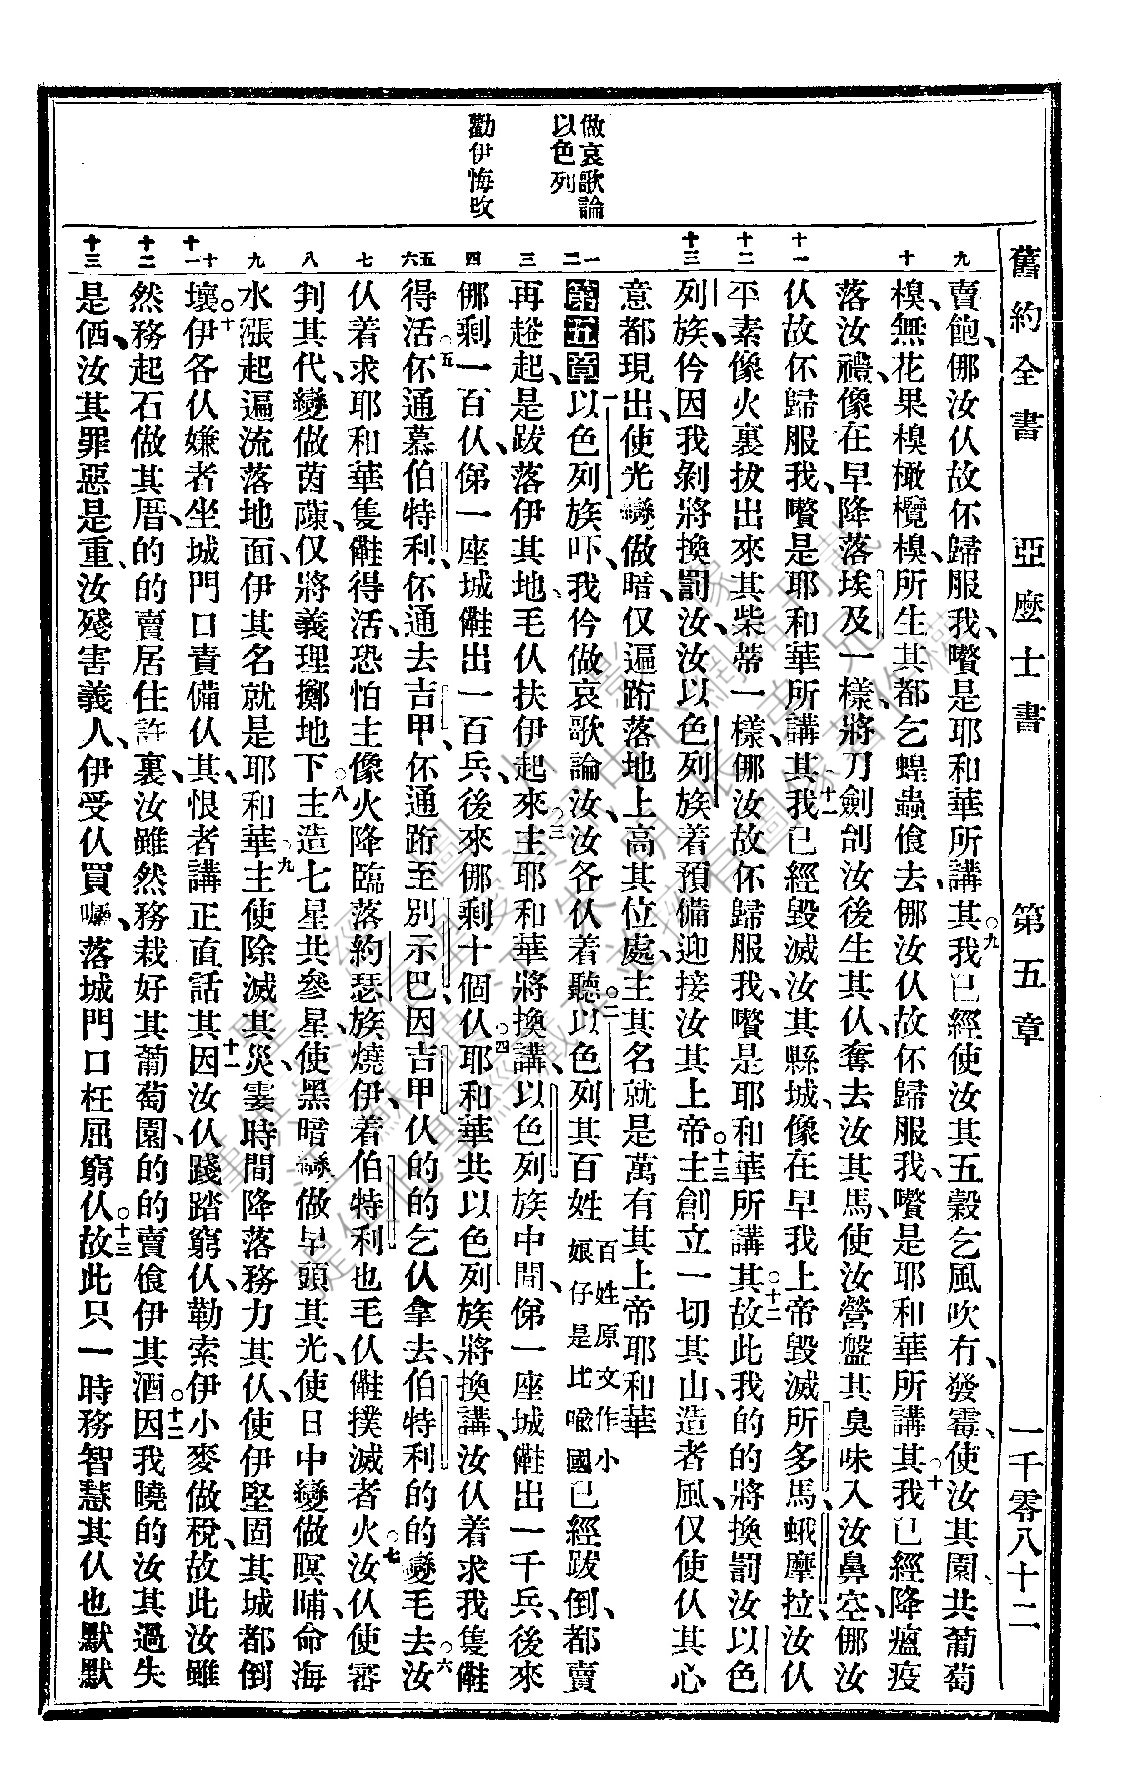 舊約全書 亞麼士書 第五章 一千零八十二
做哀歌論
以色列
勸伊悔改
九 十 十一 十二 十三 一二 三 四 五六 七 八 九 十十一 十二 十三
賣飽、那汝仈故伓歸服我、嚽是耶和華所講其。九我已經使汝其五穀乞風吹冇、發霉、使汝其園、共葡萄
模、無花果模、橄欖模、所生其都乞蝗蟲飡去、那汝仈故伓歸服我、嚽是耶和華所講其。十我已經降瘟疫
落汝禮、像在早降落埃及一樣、將刀劍刣汝後生其仈、奪去汝其馬、使汝營盤其臭味入汝鼻空、那汝
仈故伓歸服我、嚽是耶和華所講其。十一我已經毀滅汝其縣城、像在早我上帝毀滅所多馬、蛾摩拉、汝仈
平素像火裏拔出來其柴蒂一樣、那汝故伓歸服我、嚽是耶和華所講其。十二故此我的的將換罰汝以色
列族、仱因我剝將換罰汝、汝以色列族着預備迎接汝其上帝。十三主創立一切其山、造者風、仅使仈其心
意都現出、使光變做暗、仅遍跲落地上高其位處、主其名就是萬有其上帝耶和華
第五章 一以色列族吓、我仱做哀歌論汝、汝各仈着聽。二以色列其百姓百姓原文作小娘仔是比喩國已經跋倒、都賣
再𨑨起、是跋落伊其地、毛仈扶伊起來。三主耶和華將換講、以色列族中間、俤一座城䧹出一千兵、後來
那剩一百仈、俤一座城䧹出一百兵、後來那剩十個仈。四耶和華共以色列族將換講、汝仈着求我隻䧹
得活。五伓通慕伯特利、伓通去吉甲、伓通跲至別示巴、因吉甲仈的的乞仈拿去、伯特利的的變毛去。六汝
仈着求耶和華隻䧹得活、恐怕主像火降臨落約瑟族燒伊、着伯特利也毛仈䧹撲滅者火。七汝仈使審
判其代、變做茵蔯、仅將義理擲地下。八主造七星共參星、使黑暗變做早頭其光、使日中變做暝晡、命海
水漲起遍流落地面、伊其名就是耶和華。九主使除滅其災、霎時間降落務力其仈、使伊堅固其城都倒
壞。十伊各仈嫌者坐城門口責備仈其、恨者講正直話其。十一因汝仈踐踏窮仈、勒索伊小麥做稅、故此汝雖
然務起石做其厝、的的賣居住許裏、汝雖然務栽好其葡萄園、的的賣飡伊其酒。十二因我曉的汝其過失
是価、汝其罪惡是重、汝殘害義人、伊受仈買囑、落城門口枉屈窮仈。十三故此只一時務智慧其仈也默默